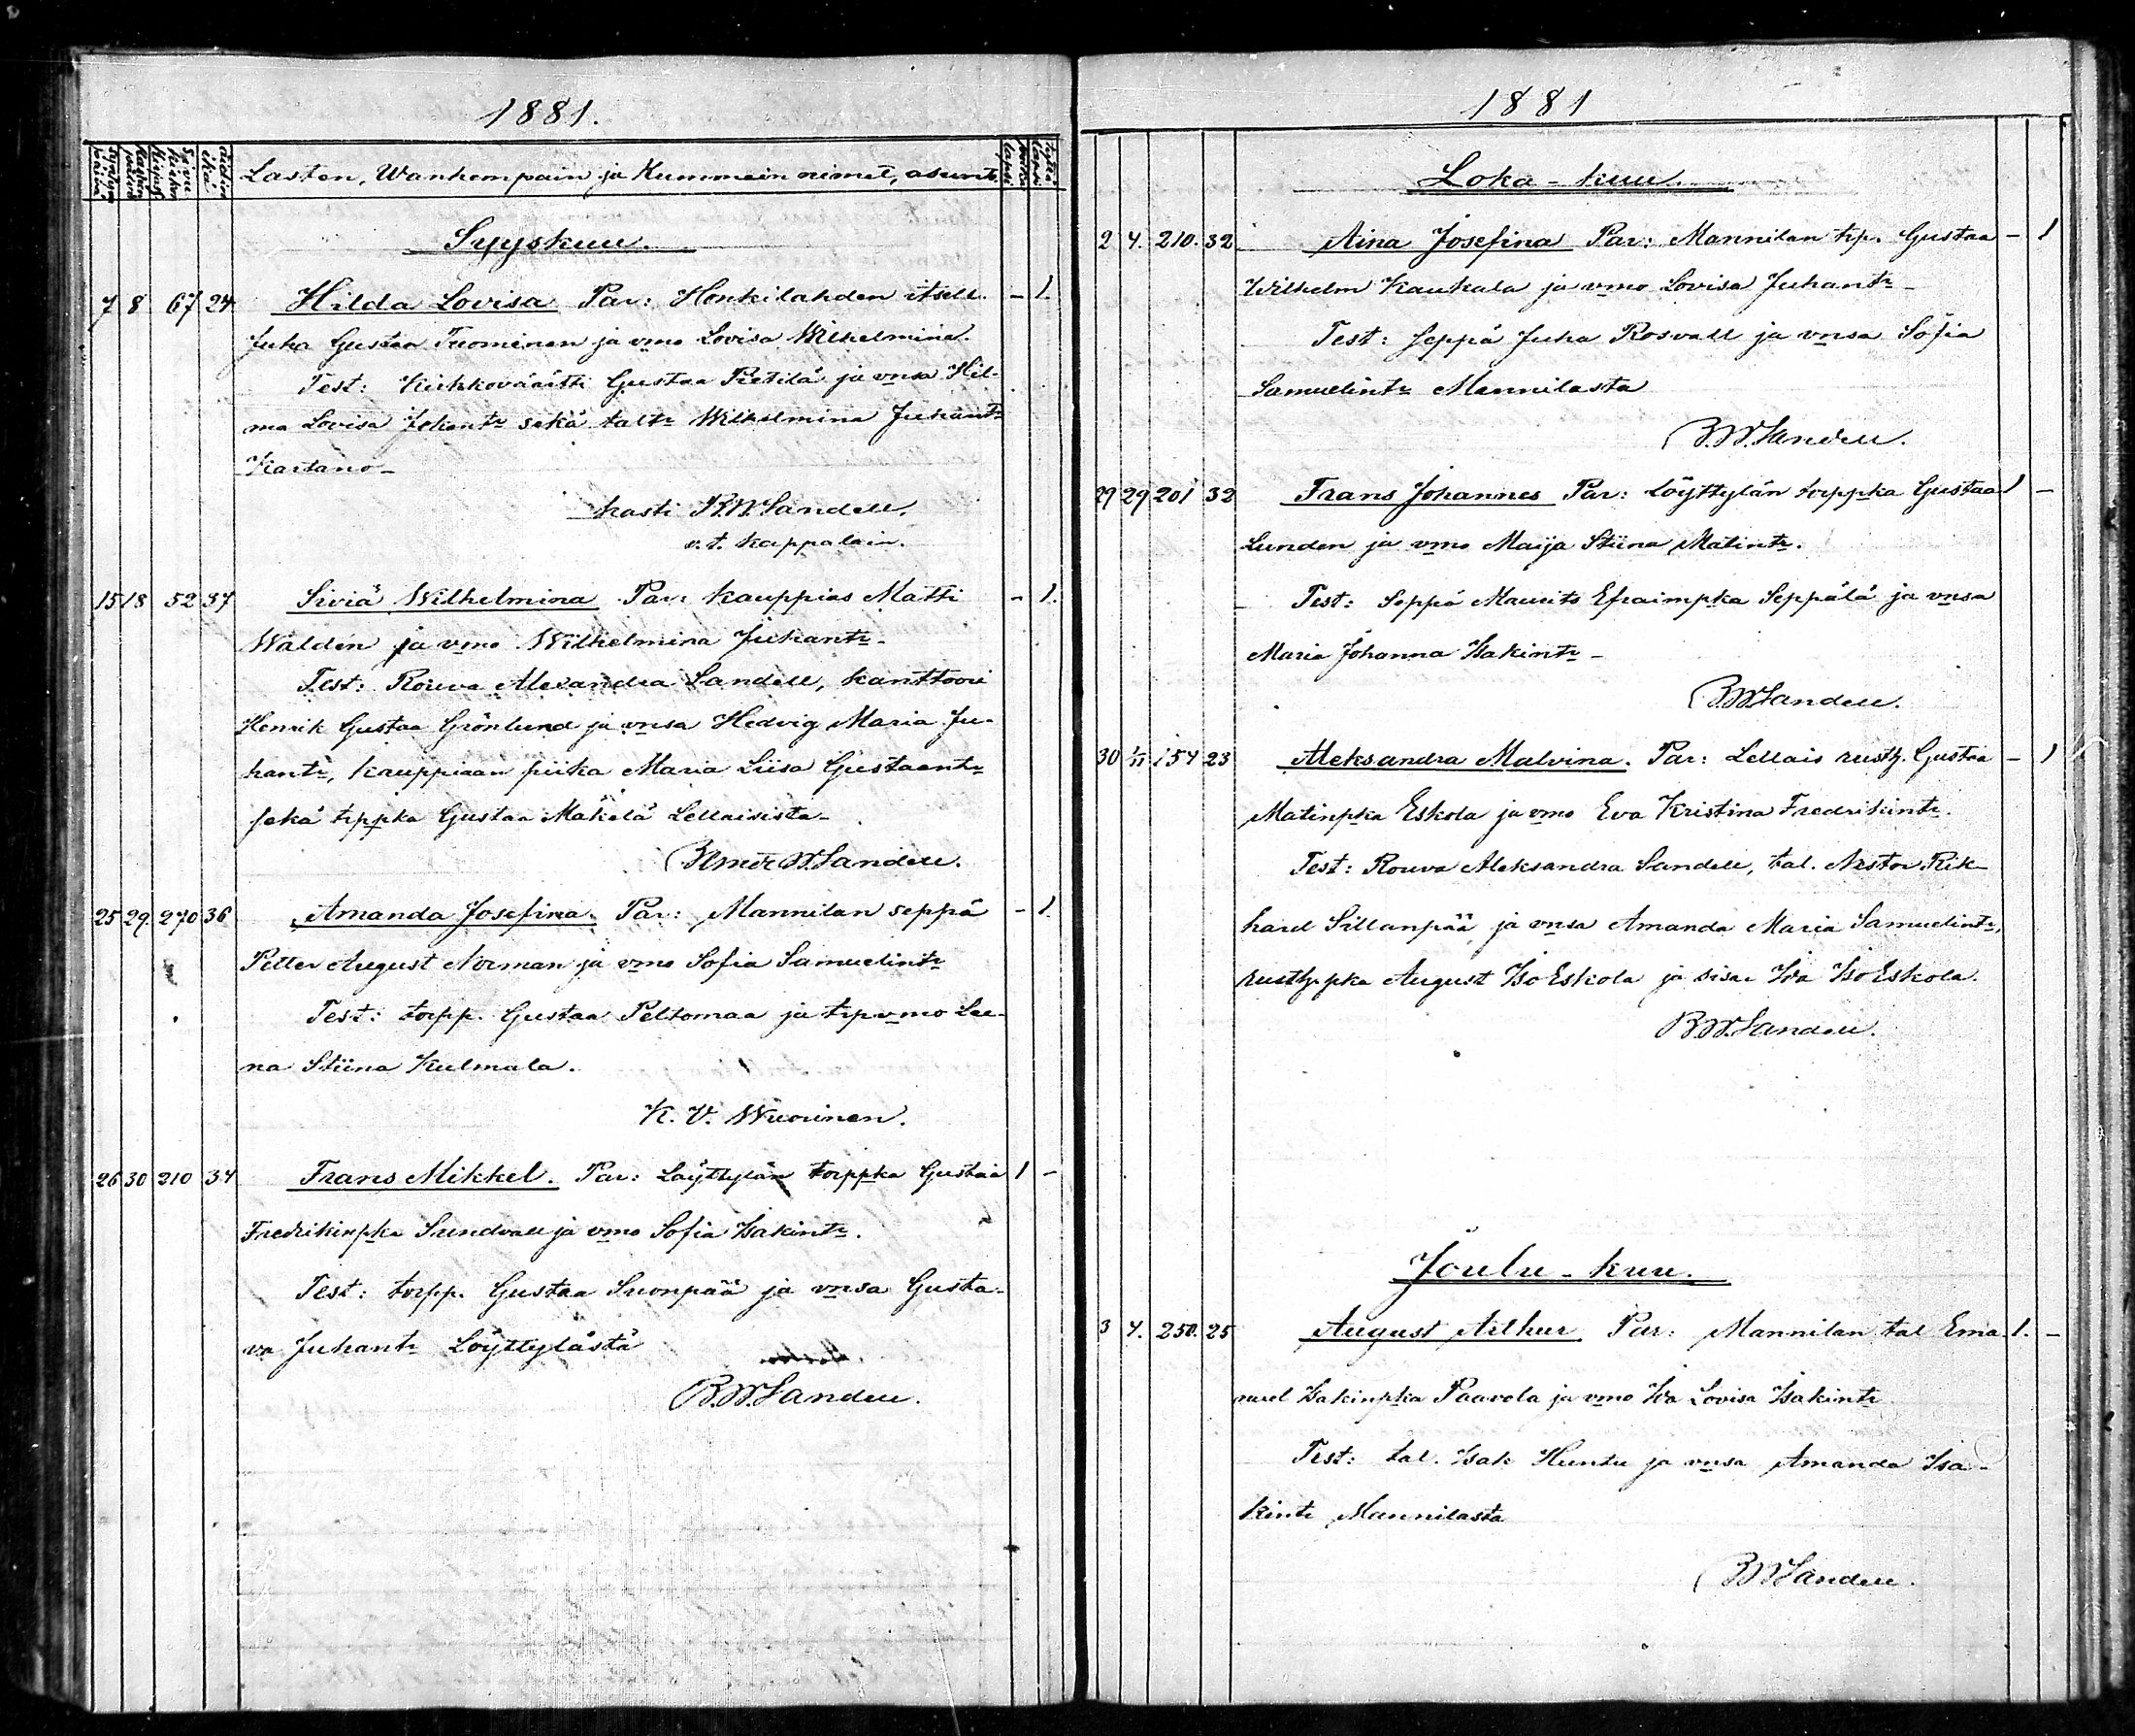 1881.
Lasten, Wanhempain ja Kummein nimet, asunto
Syyskuu.
7 8 67 24 Hilda Lovisa Par: Honkilahden itsell. - 1.
Juha Gustaa Tuominen ja vmo Lovisa Wilhelmina.
Test: Kirkkoväärtti Gustaa Pietilä ja vnsa Hil-
ma Lovisa Johantr sekä taltr Wilhelmina Juhantr
Kartano -
kasti R.W. Sandell.
v.t. kappalain.
15 18 52 37 Siviä Wilhelmina Par: Kauppias Matti - 1.
Waldén ja vmo Wilhelmina Juhantr -
Test: Rouva Alexandra Sandell, kanttoori
Henrik Gustaa Grönlund ja vnsa Hedvig Maria Ju-
hantr, kauppiaan piika Maria Liisa Gustaantr
sekä trppka Gustaa Mäkelä Lellaisista -
W. Sandell.
25 29. 270 36 Amanda Josefina. Par: Mannilan seppä - 1.
Petter August Norman ja vmo Sofia Samuelintr
Test: torpp. Gustaa Peltomaa ja trpvmo Lee-
na Stiina Kulmala.
K. V. Wuorinen.
26 30 210 34 Frans Mikkel. Par: Löyttylän torppka Gustaa 1 -
Fredrikinpka Sundvall ja vmo Sofia Isakintr.
Test: torpp. Gustaa Suonpää ja vnsa Gusta-
va Juhantr Löyttylästä
R.W. Sandell.
1881
Loka-kuu.
2 4. 210. 32 Aina Josefina Par: Mannilan trp. Gustaa - 1
Wilhelm Kaukala ja vmo Lovisa Juhantr -
Test: Seppä Juha Rosvall ja vnsa Sofia
Samuelintr Mannilasta
R.W. Sandell.
29 29 201 32 Frans Johannes Par: Löyttylän torppka Gustaa 1 -
Lunden ja vmo Maija Stiina Matintr.
Test: Seppä Maurits Efraimpka Seppälä ja vnsa
Maria Johanna Isakintr -
R.W. Sandell.
30 1/11 154 23 Aleksandra Malvina. Par: Lellais rusth. Gustaa - 1
Matinpka Eskola ja vmo Eva Kristina Fredrikintr.
Test: Rouva Aleksandra Sandell, tal. Nestor Rik-
hard Sillanpää ja vnsa Amanda Maria Samuelintr,
rusth. pka August Iso Eskola ja sisar Iva Iso Eskola.
R.W. Sandell.
Joulu-kuu.
3 4. 250. 25 August Arthur Par: Mannilan tal Ema- 1. -
nuel Isakinpka Paavola ja vmo Iva Lovisa Isakintr
Test: tal. Isak Huntu ja vnsa Amanda Isa-
kintr Mannilasta
R.W. Sandell.